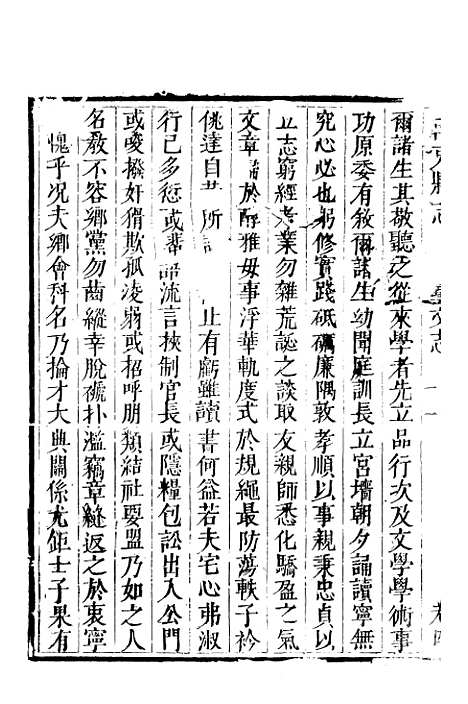 爾諸生其敬聽之從來學者先立品行次及文學學術事
功原委有敘爾諸生幼聞庭訓長立宮墻朝夕誦讀寧無
究心必也躬修實踐砥礪廉隅敦孝順以事親秉忠貞以
立志窮經考業勿雜荒誕之談取友親師悉化驕盈之氣
文章歸於醇雅毋事浮華軌度式於規繩最防蕩軼子衿
佻達自昔所 止有虧雖讀書何益若夫宅心弗淑
行己多愆或蜚語流言挾制官長或隱糧包訟出入公門
或唆撥奸猾欺孤凌弱或招呼朋類結社要盟乃如之人
名教不容鄉黨勿齒縱幸脫褫扑濫竊章縫返之於衷寧
愧乎况夫鄉會科名乃掄才大典關係尤鉅士子果有
縣志
藝文志